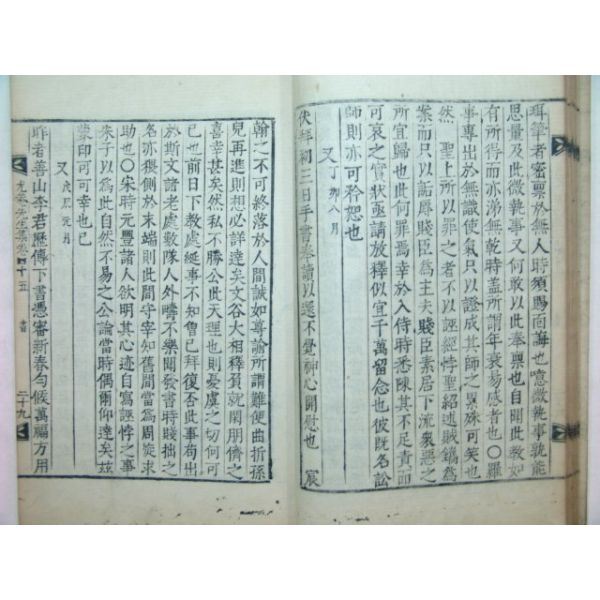 珥筆者密稟於無人時須賜面誨也噫微執事孰能
思量及此微執事又何敢以此奉稟也自聞此敎如
有所得而亦涕無乾時盖所謂年衰易感者也○羅
事專出於無識使氣只以證成其師之異殊可笑也
然 聖上所以罪之者不以誣經悖聖紹述賊鑴爲
案而只以詬辱賤臣爲主夫賤臣素居下流衆惡之
所宜歸也此何罪焉幸於入侍時悉陳其不足責而
可哀之實狀亟請放釋似宜千萬留念也彼旣名訟
師則亦可矜恕也
又 丁卯八月
伏拜初三日手書奉讀以還不覺神心開慰也 宸
翰之不可終落於人間誠如尊諭所謂難便曲折孫
兒再進則想必詳達矣文谷大相釋負就閑朋儕之
喜幸甚矣然私不勝公此天理也則憂虞之切何可
已也前日下敎處綎事不知魯已拜復否此事苟出
於斯文諸老處數隊人外疇不樂聞發書時賤拙之
名亦猥側於末端則此間守宰知舊間當爲周旋求
助也○宋時元豐諸人欲明其心迹自寫誣悖之事
朱子以爲此自然不易之公論當時偶爾仰達矣玆
蒙印可可幸也已
又 戊辰元月
昨者善山李君歷傳下書憑審新春匀候萬福方用
先生集卷 四十五 書 二十九